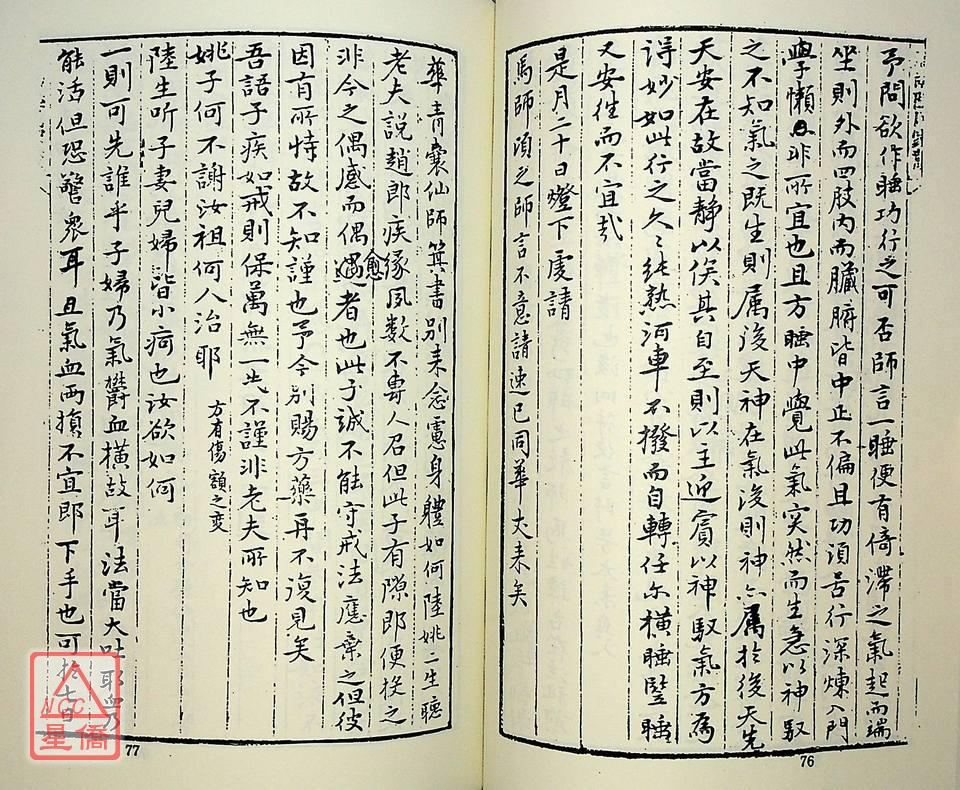 予問欲作睡功行之可否師言一睡便有倚滯之氣起而端
坐則外而四肢內而臟腑皆中正不偏且功須苦行深煉入門
學懶且非所宜也且方睡中覺此氣突然而生急以神馭
之不知氣之既生則屬後天神在氣後則神亦屬於後天先
天安在故當靜以俟其自至則以主迎賓以神馭氣方為
得妙如此行之久〻純熟河車不撥而自轉任尔橫睡豎睡
又安往而不宜哉
是月二十日燈下虔請
馬師須臾師言不意請速已同華丈来矣
華青囊仙師箕書別来念憲身體如何陸姚二生聽
老夫說趙郎疾緣風数不專人召但此子有隙即便投之
非今之偶感而偶愈者也此子誠不能守戒法應棄之但彼
因有所恃故不知謹也予今別賜方藥再不復見矣
吾語子疾如戒則保萬無一失不謹非老夫所知也
姚子何不謝汝祖何人治耶 方有傷額之變
陸生听子妻兒婦皆小疴也汝欲如何
一則可先誰乎子婦乃氣欝血橫故耳法當大吐耶血乃
能活但恐驚衆耳且氣血兩損不宜即下手也可於七日
77
76
NCC
星僑